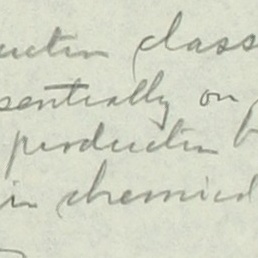 uction class
sentially on
production b
in chemical